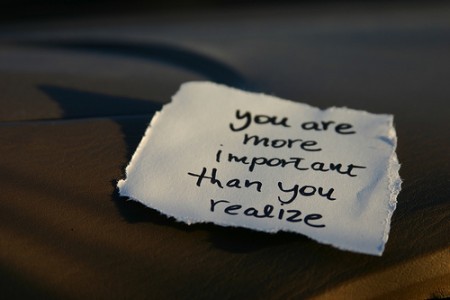 you are
more
important
than you
realize